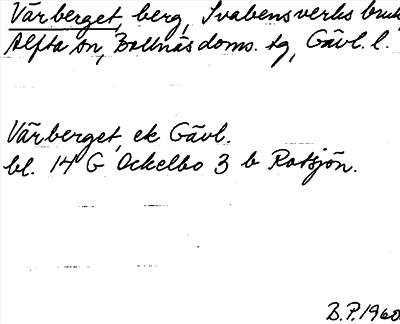 Vårberget, berg, Svabensverks bruk
Alfta sn, Bollnäs doms. tg, Gävl. l.
Vårberget, ek Gävl.
bl. 14 G Ockelbo 3 b Rotsjön.
B.P. 1960